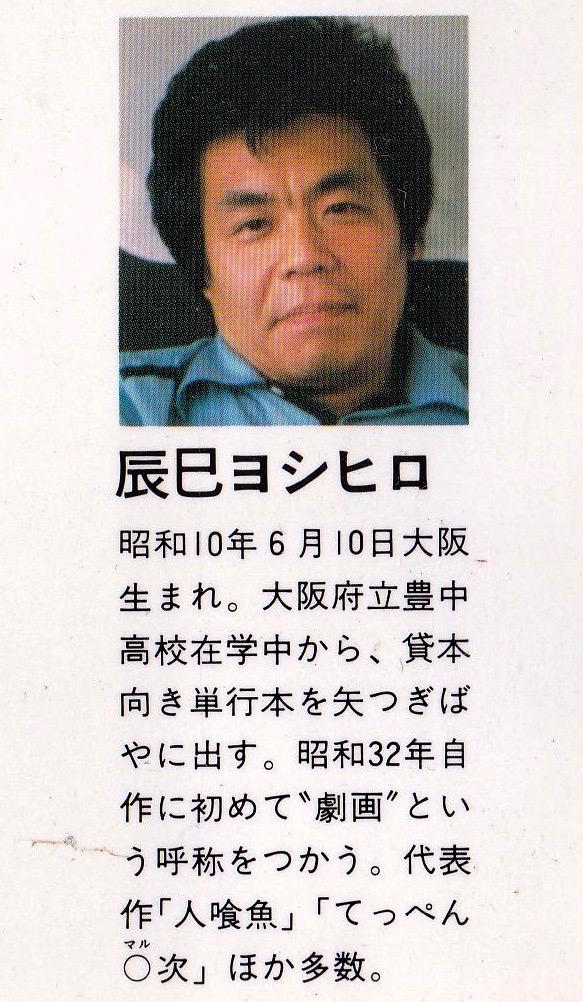 辰巳ヨシヒロ
昭和10年6月10日大阪
生まれ。大阪府立豊中
高校在学中から、貸本
向き単行本を矢つぎば
やに出す。昭和32年自
作に初めて〝劇画〟とい
う呼称をつかう。代表
作「人喰魚」「てっぺん
マル
○次」ほか多数。